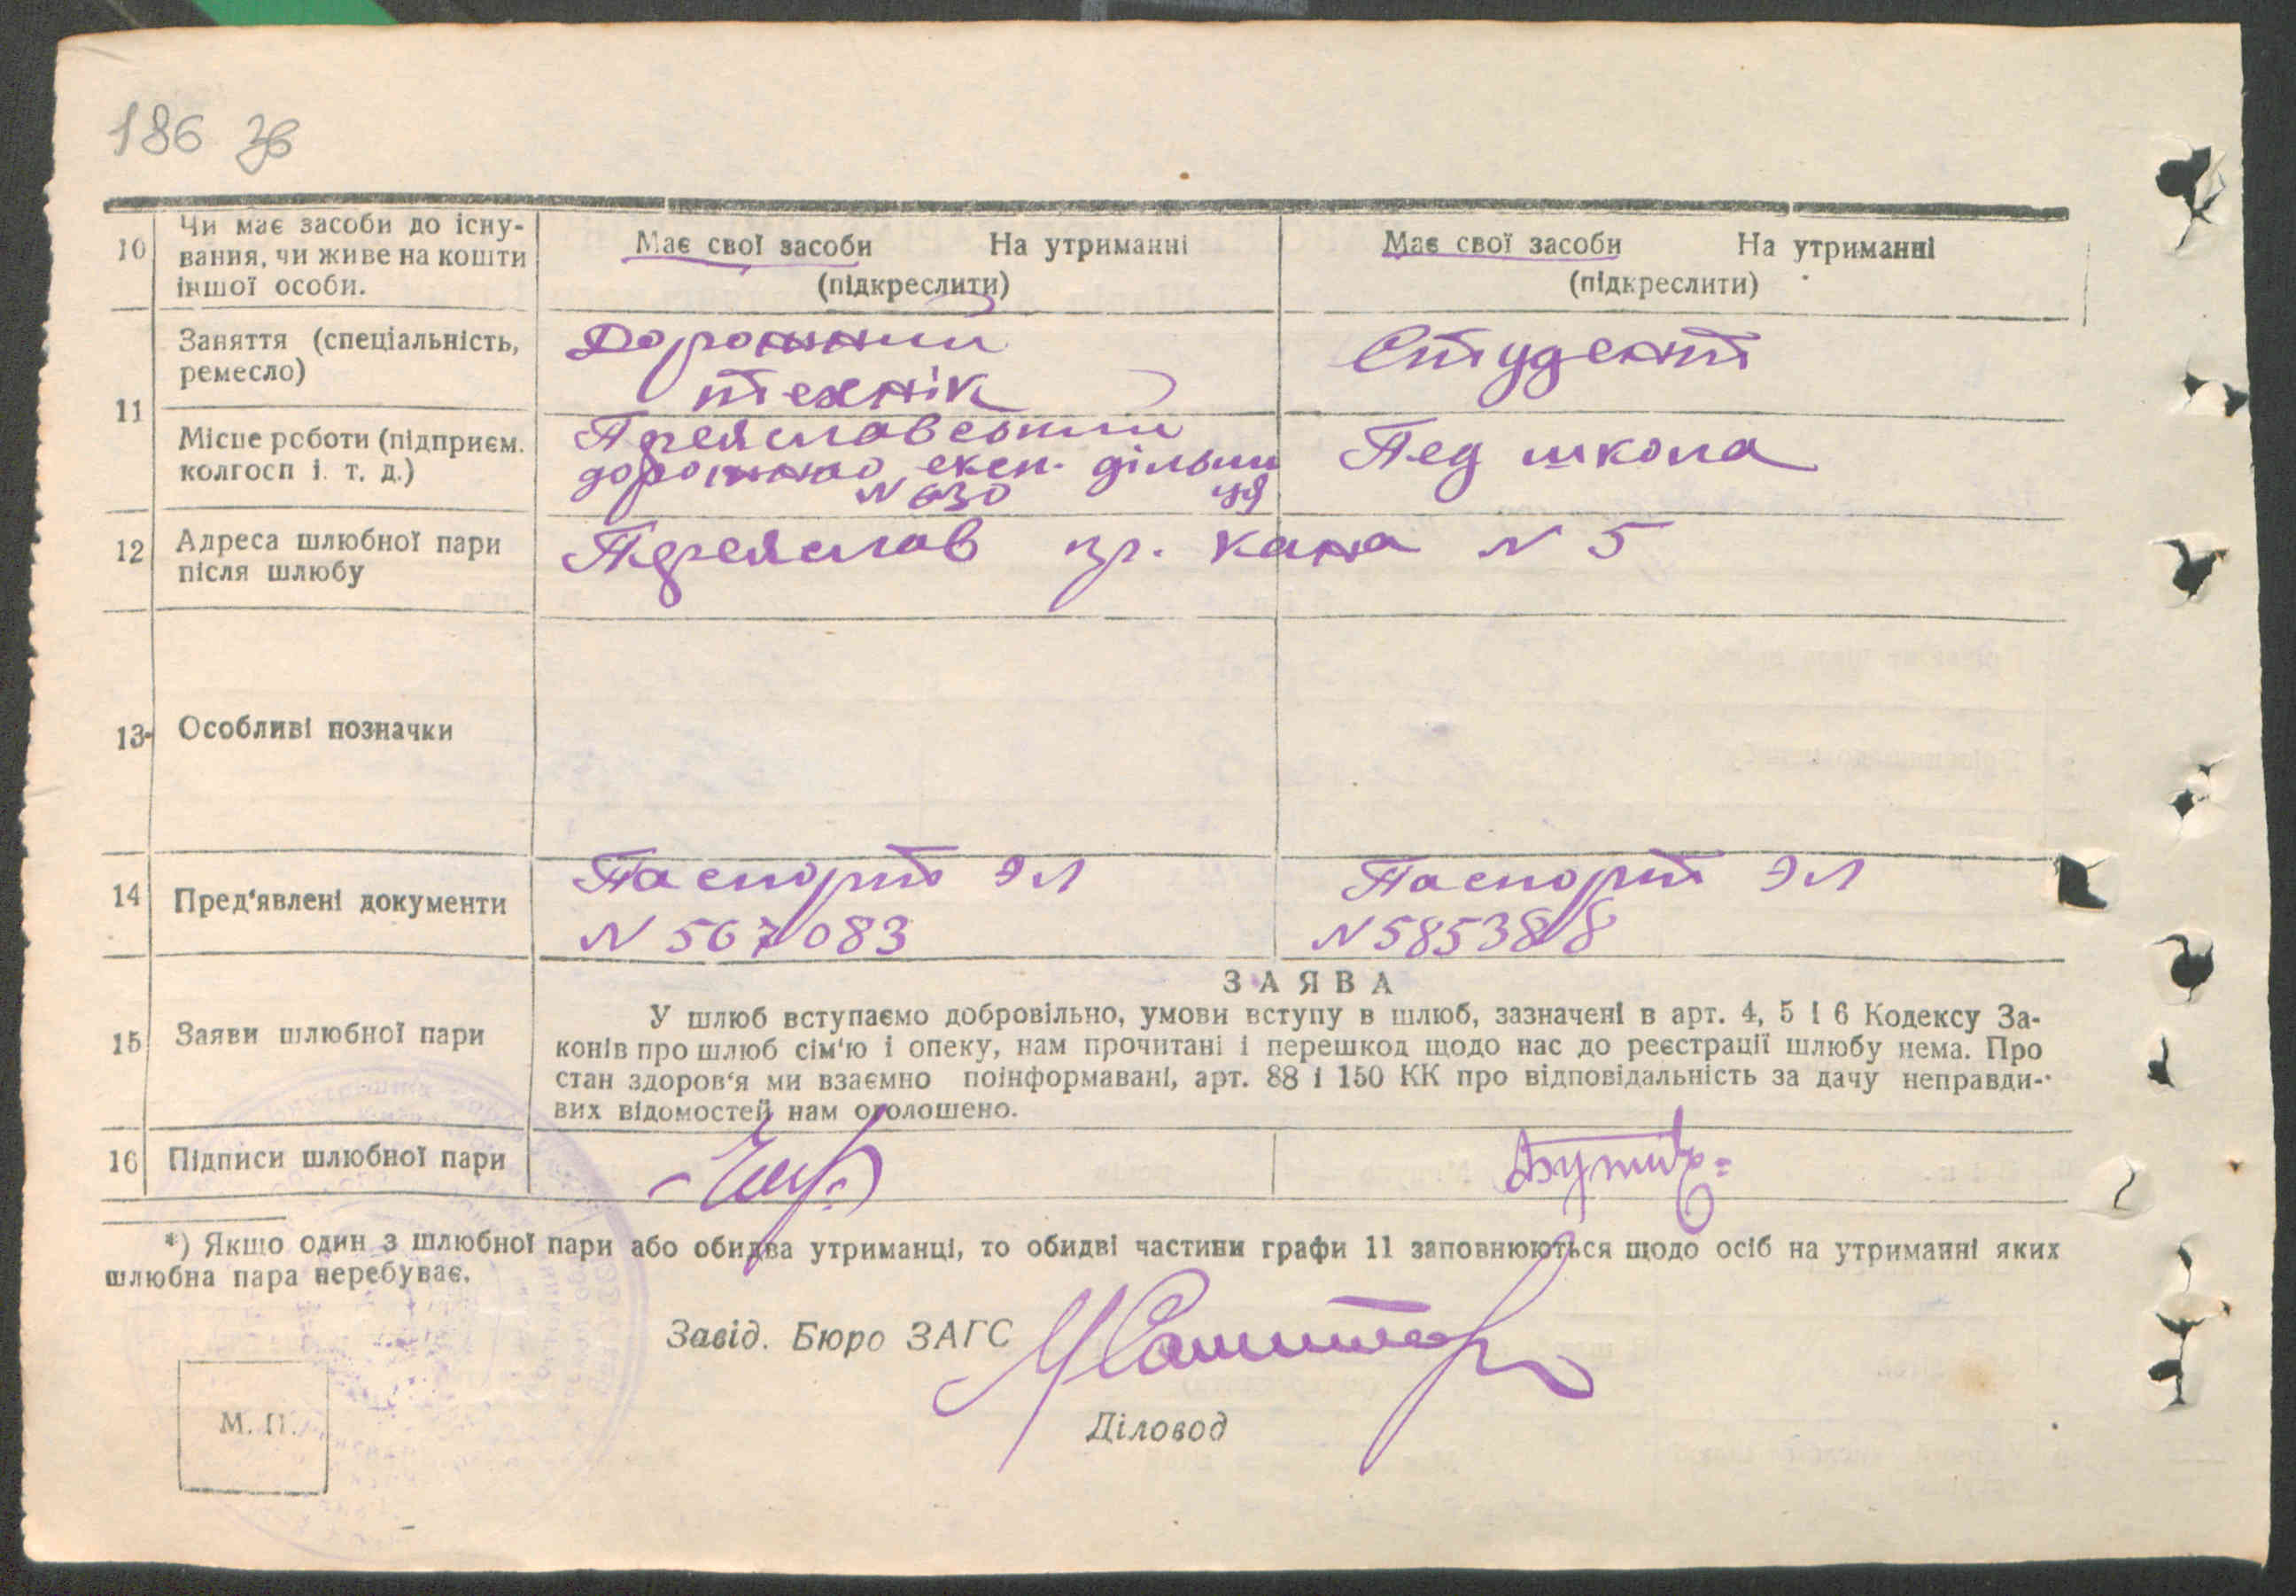 186 зв
10 Чи має засоби до існу-
вання, чи живе на кошти
іншої особи.
Має свої засоби На утриманні
(підкреслити)
Має свої засоби На утриманні
(підкреслити)
11 Заняття (спеціальність,
ремесло)
Дорожний
технік
Студент
Місце роботи (підприєм.
колгосп і. т. д.)
Переяславський
дорожно експ. дільни
ця
N 630
Пед школа
12 Адреса шлюбної пари
після шлюбу
Переяслав пр. Кана N 5
13 Особливі позначки
14 Пред'явлені документи
Паспорт ЭЛ
N 567083
Паспорт ЭЛ
N 585388
15 Заяви шлюбної пари
ЗАЯВА
У шлюб вступаємо добровільно, умови вступу в шлюб, зазначені в арт. 4, 5 і 6 Кодексу За-
конів про шлюб сім'ю і опеку, нам прочитані і перешкод щодо нас до реєстрації шлюбу нема. Про
стан здоров'я ми взаємно поінформавані, арт. 88 і 150 КК про відповідальність за дачу неправди-
вих відомостей нам оголошено.
16 Підписи шлюбної пари
*) Якщо один з шлюбної пари або обидва утриманці, то обидві частини графи 11 заповнюються щодо осіб на утриманні яких
шлюбна пара перебуває.
Завід. Бюро ЗАГС
Діловод
М. П.